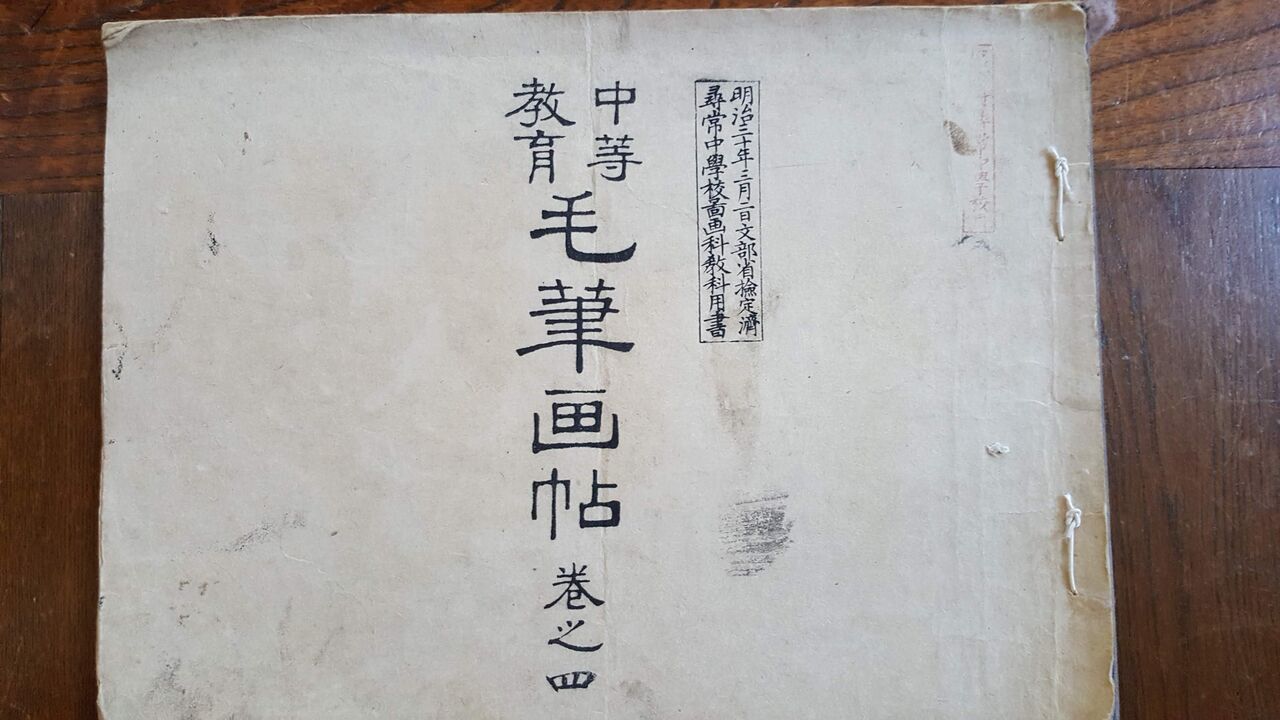 明治三十年三月二日文部省檢定濟
尋常中學校啚画科教科用書
中等
教育
毛筆画帖
卷之四